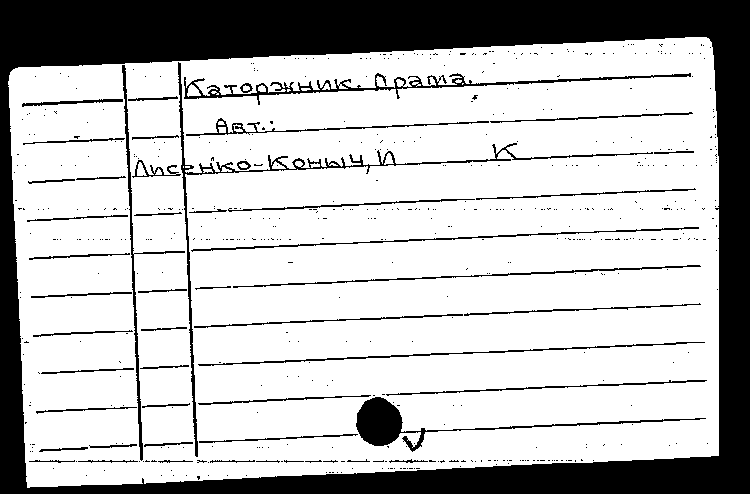 Каторжник. Драма.
Авт.:
Лисенко-Коныч, И К